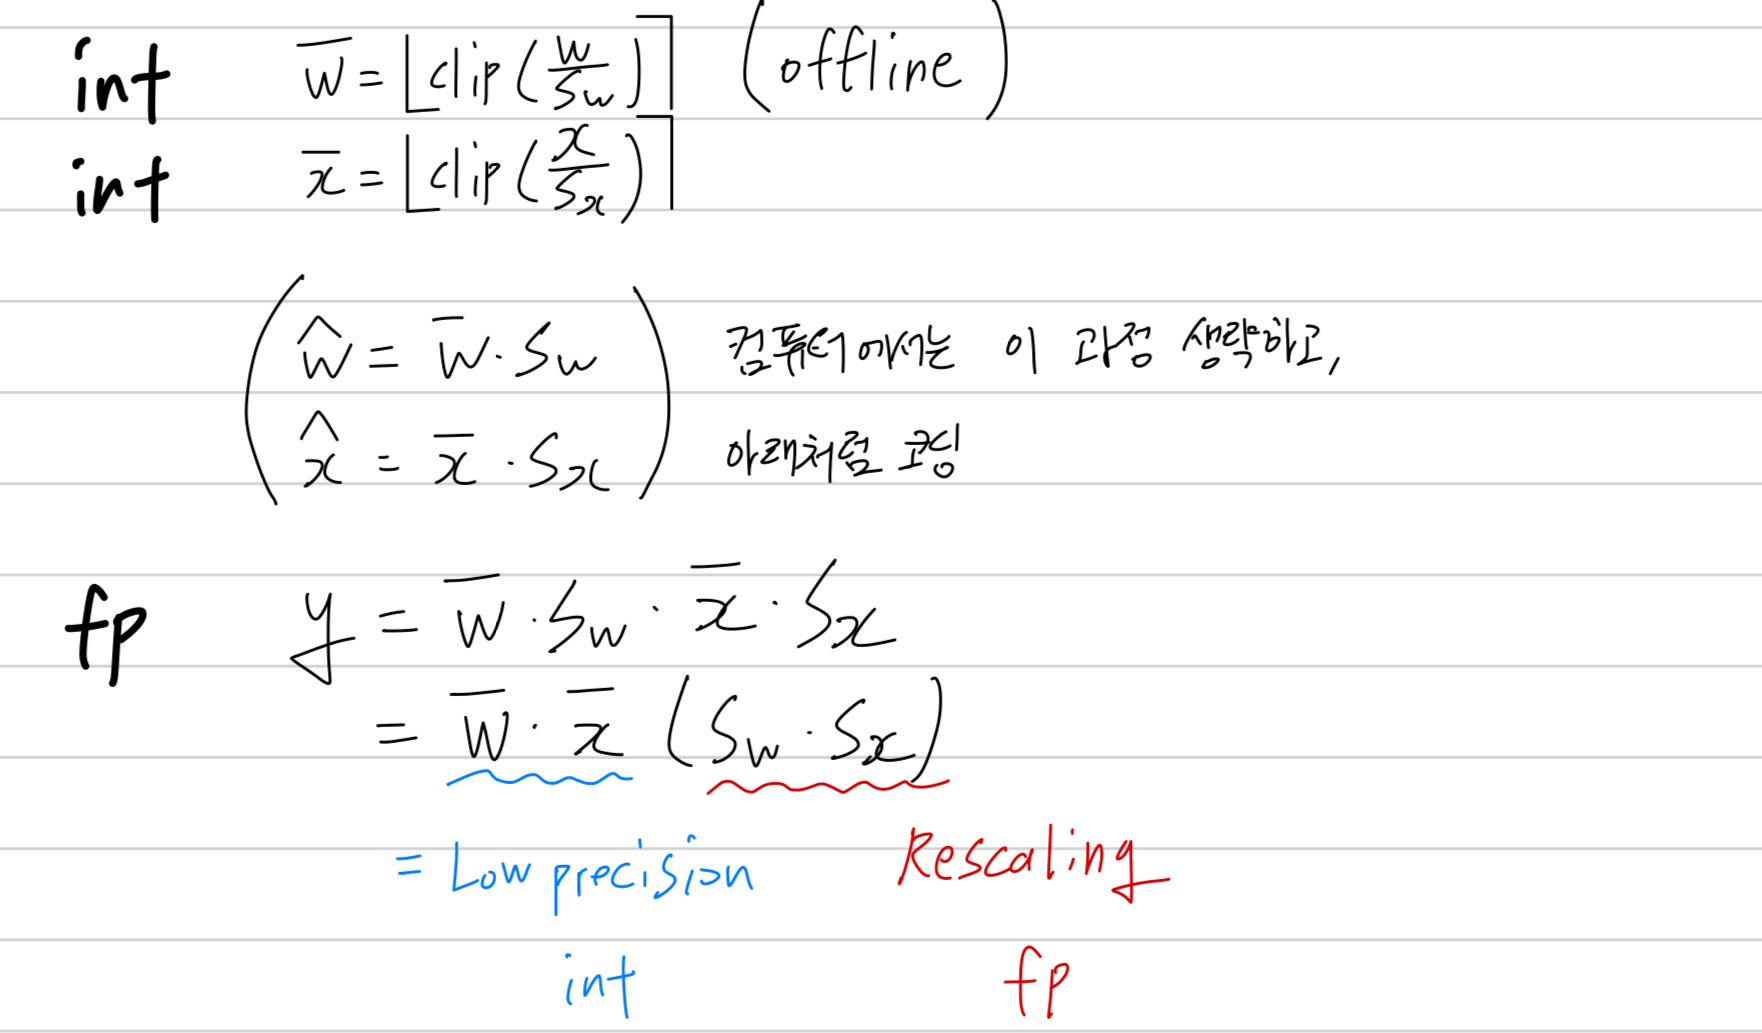 int w̅ = ⌊clip(w/s_w)⌉ (offline)
int x̅ = ⌊clip(x/s_x)⌉
(ŵ = w̅ · s_w 컴퓨터에서는 이 과정 생략하고,
x̂ = x̅ · s_x) 아래처럼 코딩
fp y = w̅ · s_w · x̅ · s_x
= w̅ · x̅ (s_w · s_x)
= Low precision Rescaling
int fp